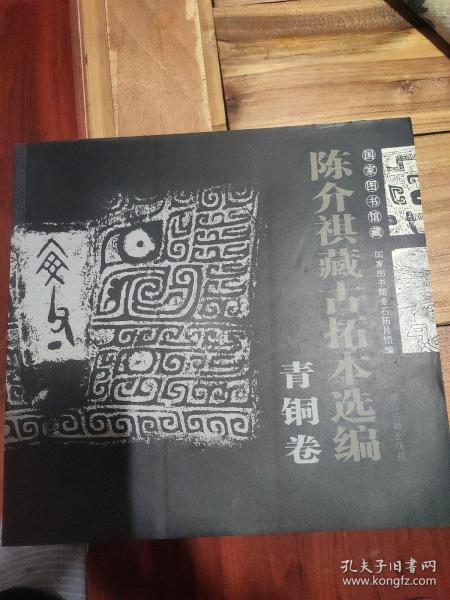 国家图书馆藏
陈介祺藏古拓本选编
国家图书馆金石拓片组编
青铜卷
浙江古籍出版社
孔夫子旧书网
www.kongfz.com